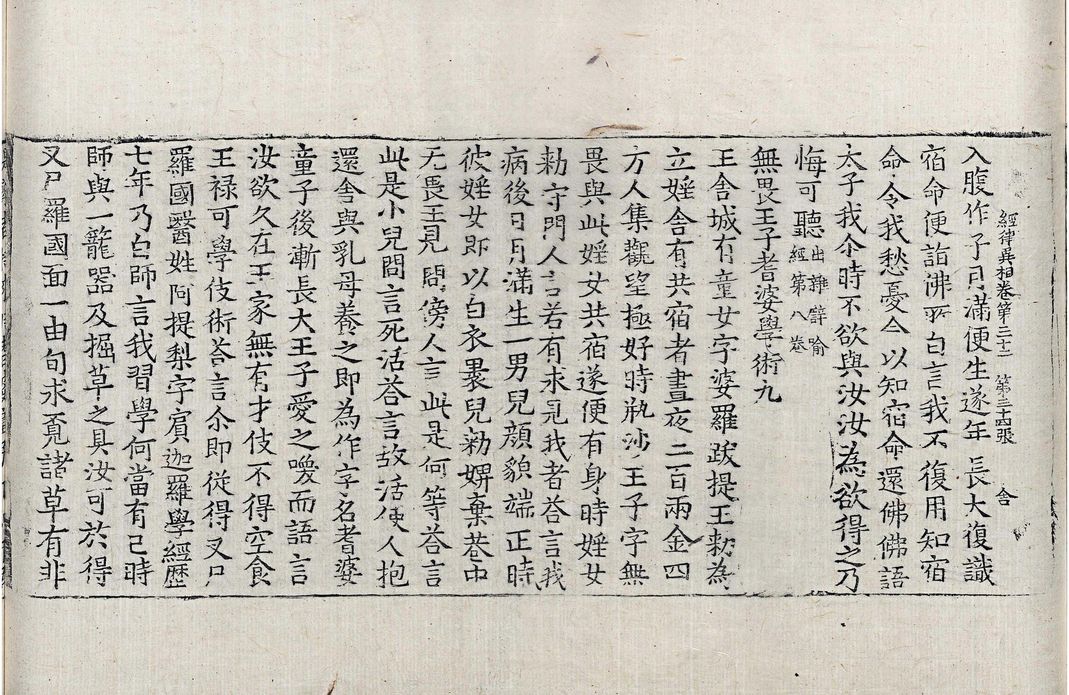 經律異相卷第三十二 第三十四張 舍
入腹作子月滿便生遂年長大復識
宿命便詣佛所白言我不復用知宿
命令我愁憂今以知宿命還佛佛語
太子我尒時不欲與汝汝為欲得之乃
悔可聽 出雜譬喻
經第八卷
無畏王子耆婆學術九
王舍城有童女字婆羅跋提王勑為
立婬舍有共宿者晝夜二百兩金四
方人集觀望極好時瓶沙王子字無
畏與此婬女共宿遂便有身時婬女
勑守門人言若有求見我者荅言我
病後日月滿生一男兒顏貌端正時
彼婬女即以白衣裹兒勑婢棄巷中
无畏王見問傍人言此是何等荅言
此是小兒問言死活荅言故活使人抱
還舍與乳母養之即為作字名耆婆
童子後漸長大王子愛之喚而語言
汝欲久在王家無有才伎不得空食
王禄可學伎術荅言尒即從得叉尸
羅國醫姓阿提梨字賓迦羅學經歷
七年乃白師言我習學何當有已時
師與一籠器及掘草之具汝可於得
叉尸羅國面一由旬求覓諸草有非